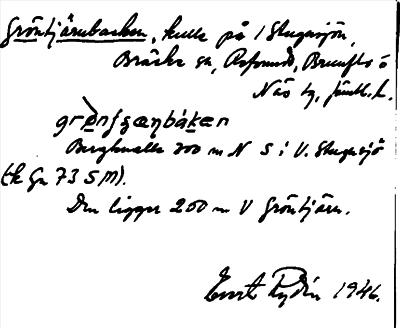 Gröntjärnbacken, kulle på / Stugusjön,
Bräcke sn, Refsund, Brunflo o
Näs tg, Jämtl. l.
Bergkulle 700 m N S i V. Stugusjö
(tk Gr 73 S M).
Den ligger 200 m V Gröntjärn.
Ernst Rydén 1946.